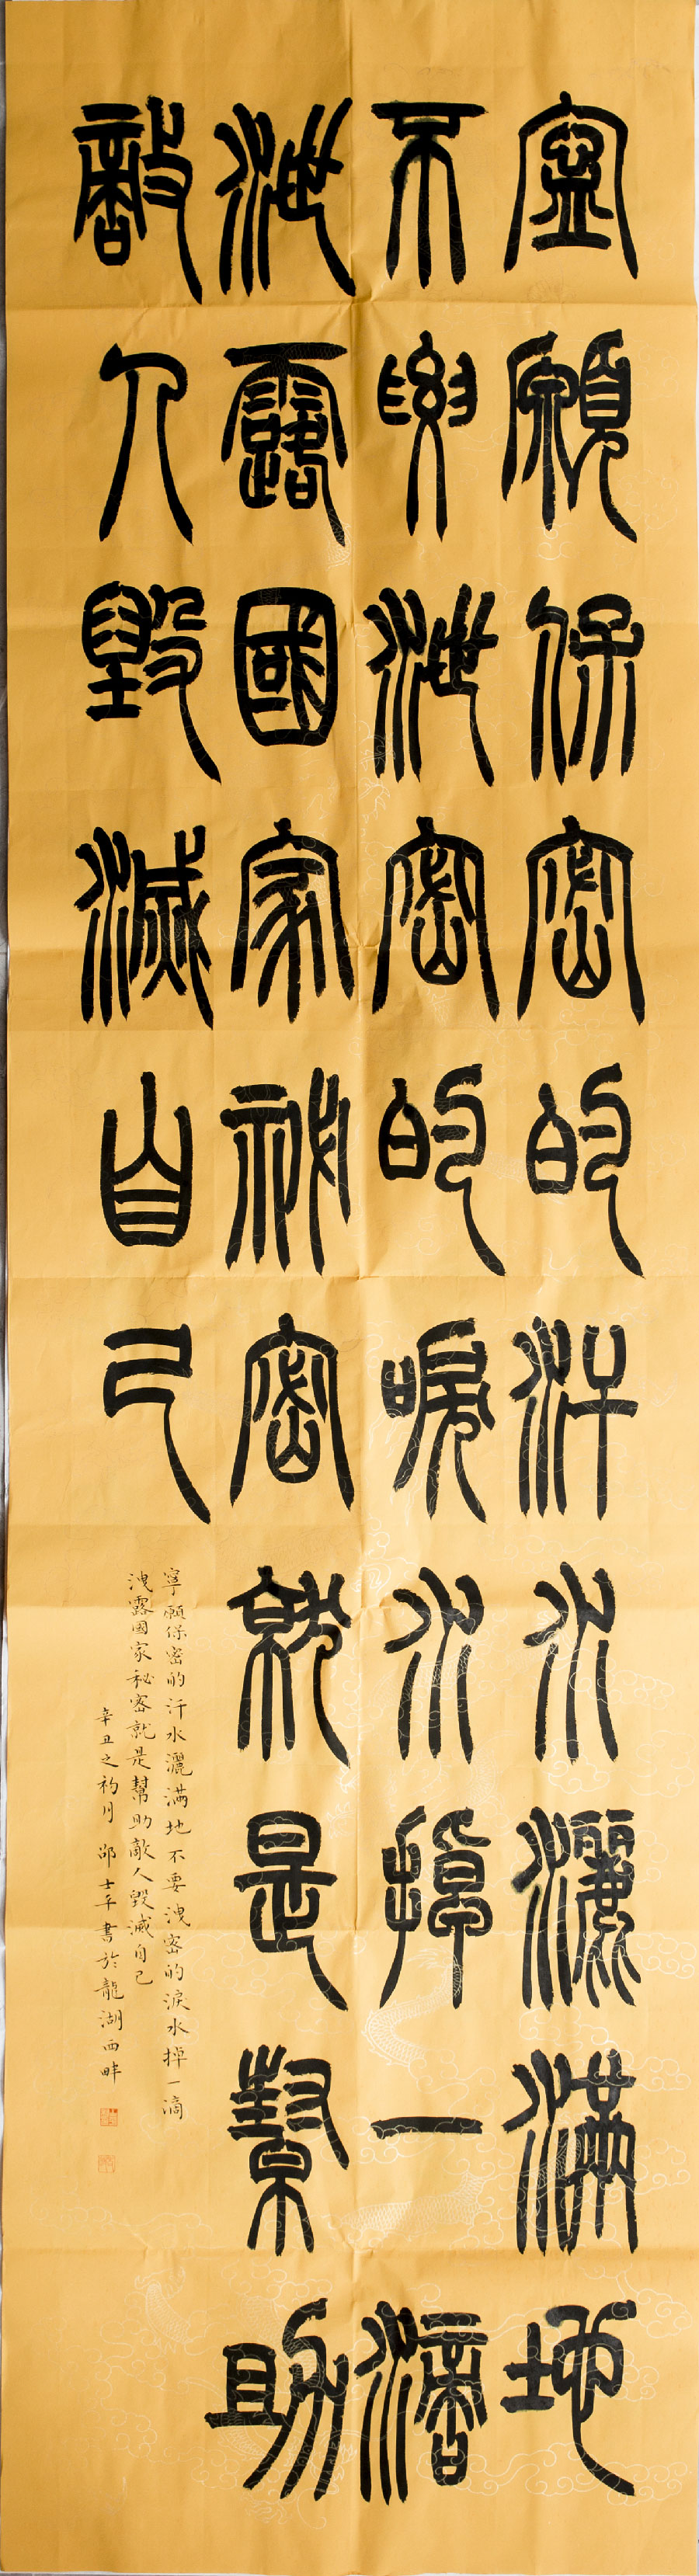 寧願保密的汗水灑滿地
不要泄密的淚水掉一滴
泄露國家祕密就是幫助
敵人毀滅自己
寧願保密的汗水灑滿地不要洩密的淚水掉一滴
洩露國家秘密就是幫助敵人毀滅自己
辛丑之初月 邵士平書於龍湖西畔